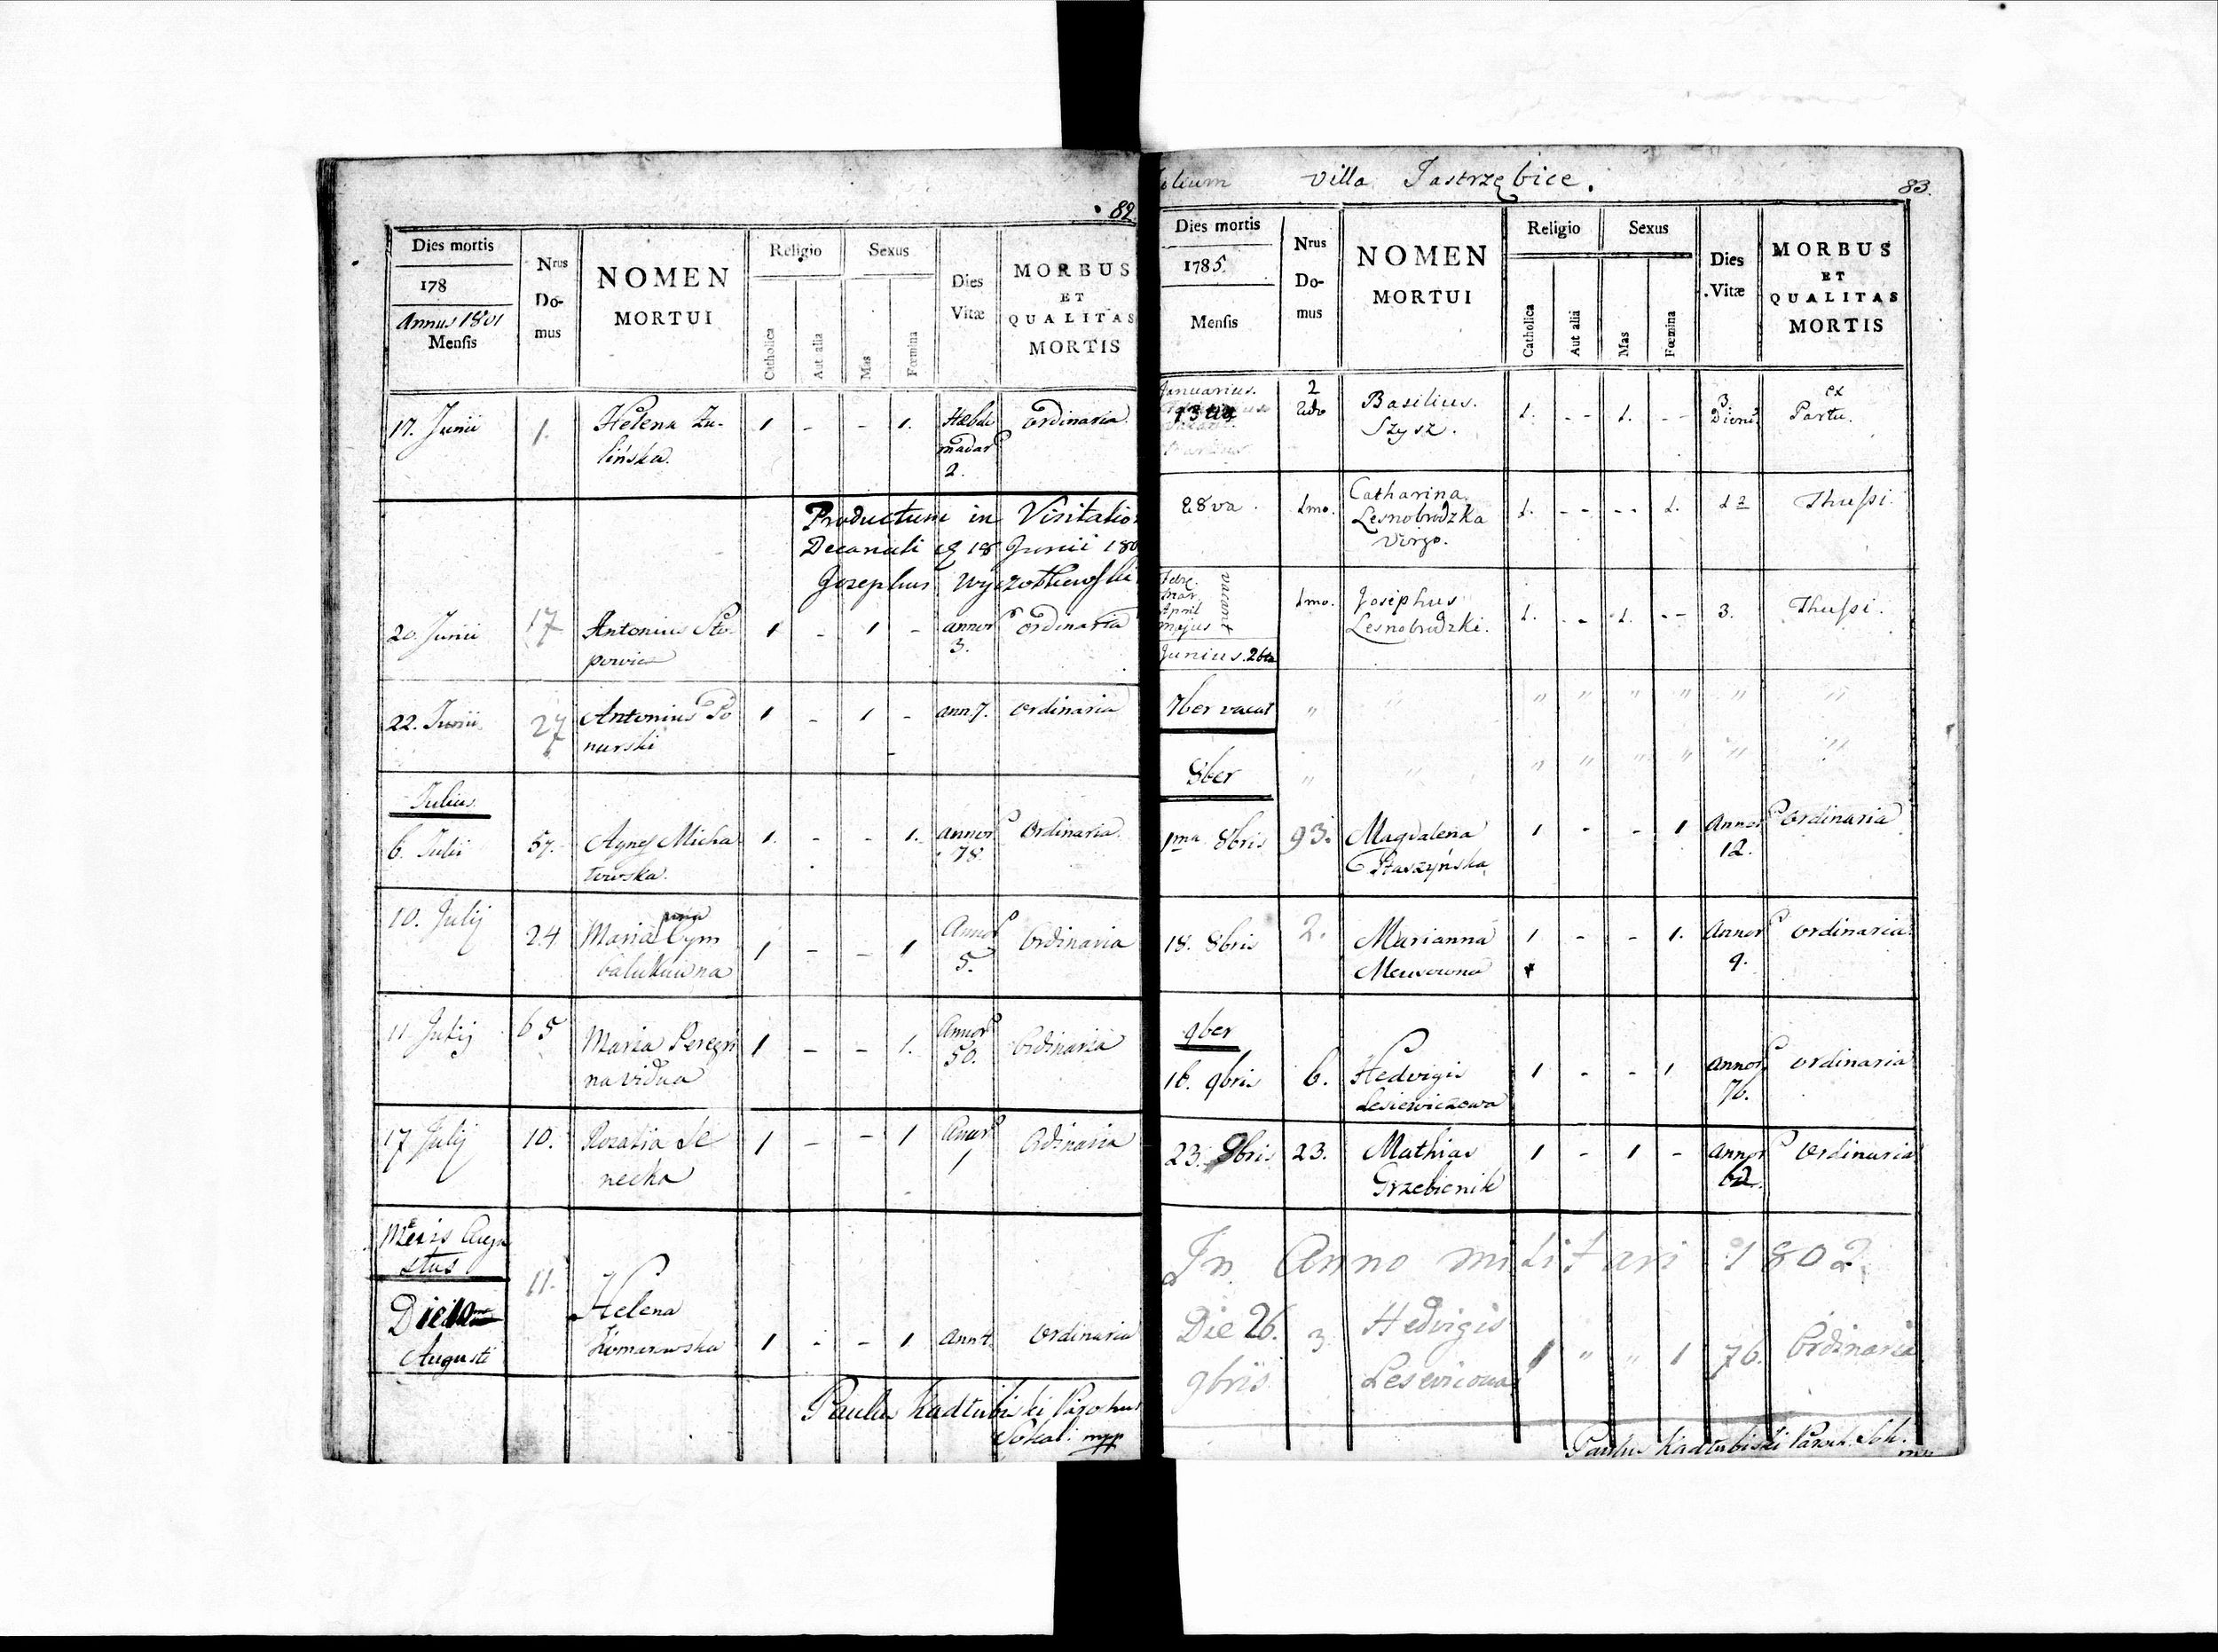 82
Dies mortis
178
Annus 1801
Mensis
Nrus
Do-
mus
NOMEN
MORTUI
Religio
Catholica
Aut alia
Sexus
Mas
Fœmina
Dies
Vitæ
MORBUS
ET
QUALITAS
MORTIS
17. Junii 1. Helena Zu- 1 - - 1. Hebdo ordinaria
lińska. madar
2.
Productum in Visitatio
Decanali 18 Junii 180
Josephus
20. Junii 17 Antonius Sto- 1 - 1 - annor ordinaria
powicz 3.
22. Junii 27 Antonius Po 1 - 1 - ann 7. ordinaria
nurski
Julius.
6. Julii 57. Agnes Micha 1. - - 1. annor ordinaria
łowska. 78
10. Julij 24 Maria Cym 1 - - 1 Annor Ordinaria
balukuwna 5.
11 Julij 65 Maria Peregri 1 - - 1. Annor Ordinaria
na vidua 50.
17 Julij 10. Rozalia Se 1 - - 1 Annor Ordinaria
necka 1
Mensis Augu
stus
11. Helena
Die
Augusti Komarowska 1 - - 1 Ann ordinaria
Paulus Kadłubiski Parochus
Sokal: mpp
villa Jastrzębice.
83.
Dies mortis
1785.
Mensis
Nrus
Do-
mus
NOMEN
MORTUI
Religio
Catholica
Aut alia
Sexus
Mas
Fœmina
Dies
Vitæ
MORBUS
ET
QUALITAS
MORTIS
Januarius. 2 Basilius. 1. - - 1. - - 3. ex
Szysz. Dierum Partu.
28va. 1mo. Catharina 1. - - - - 1. 12 Thussi.
Lesnobrodzka
Virgo.
Febr.
Mar.
April
Majus
vacant
1mo. Josephus 1. - - 1. - - 3. Thussi.
Lesnobrodzki.
Junius. 26ta
7ber vacat " " " " " " "
8ber " " " " " " " "
1ma 8bris 93. Magdalena 1 - - 1 Annor ordinaria
Staszyńska 12.
18. 8bris 2. Marianna 1 - - 1. Annor ordinaria.
9.
9ber
16. 9bris 6. Hedvigis 1 - - 1 annor ordinaria
Lesiewiczowa 76.
23. 9bris 23. Mathias 1 - 1 - annor ordinaria
Grzebienik 62.
In Anno militari 1802.
Die 26. 3 Hedvigis 1 " " 1 76. Ordinaria
9bris Lesevicowa
Paulus Kadłubiski Paroch. Sok.